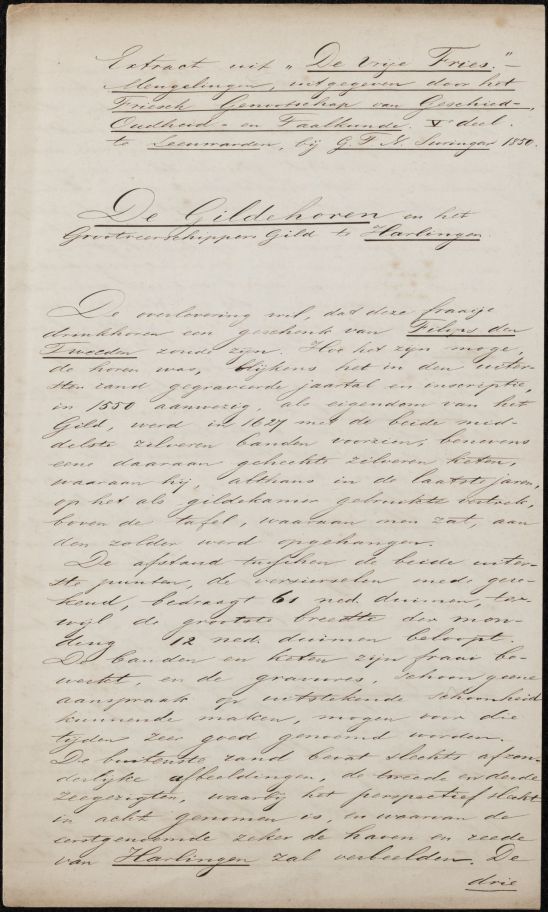 Extract uit „De vrije Fries." –
Mengelingen, uitgegeven door het
Friesch Genootschap van Geschied-,
Oudheid- en Taalkunde. V deel.
te Leeuwarden, bij G. T. N. Suringar 1850.
De Gildehoren en het
Grootveerschippers Gild te Harlingen.
De overlevering wil, dat deze fraaije
drinkhoren een geschenk van Filips den
Tweeden zoude zijn. Hoe het zijn moge,
de horen was, blijkens het in den uiter-
sten rand gegraveerde jaartal en inscriptie,
in 1550 aanwezig, als eigendom van het
Gild, werd in 1627 met de beide mid-
delste zilveren banden voorzien, benevens
eene daaraan gehechte zilveren keten,
waaraan hij, althans in de laatste jaren,
op het als gildekamer gebruikte vertrek,
boven de tafel, waaraan men zat, aan
den zolder werd opgehangen.
De afstand tusschen de beide uiter-
ste punten, de versierselen mede gere-
kend, bedraagt 61 ned. duimen, ter-
wijl de grootste breedte der mon-
ding 12 ned. duimen beloopt.
De banden en keten zijn fraai be-
werkt, en de gravures, schoon geene
aanspraak op uitstekende schoonheid
kunnende maken, mogen voor die
tijden zeer goed genoemd worden.
De buitenste rand bevat slechts afzon-
derlijke afbeeldingen, de tweede en derde
zeegezigten, waarbij het perspectief slecht
in acht genomen is, en waarvan de
eerstgenoemde zeker de haven en reede
van Harlingen zal verbeelden. De
drie